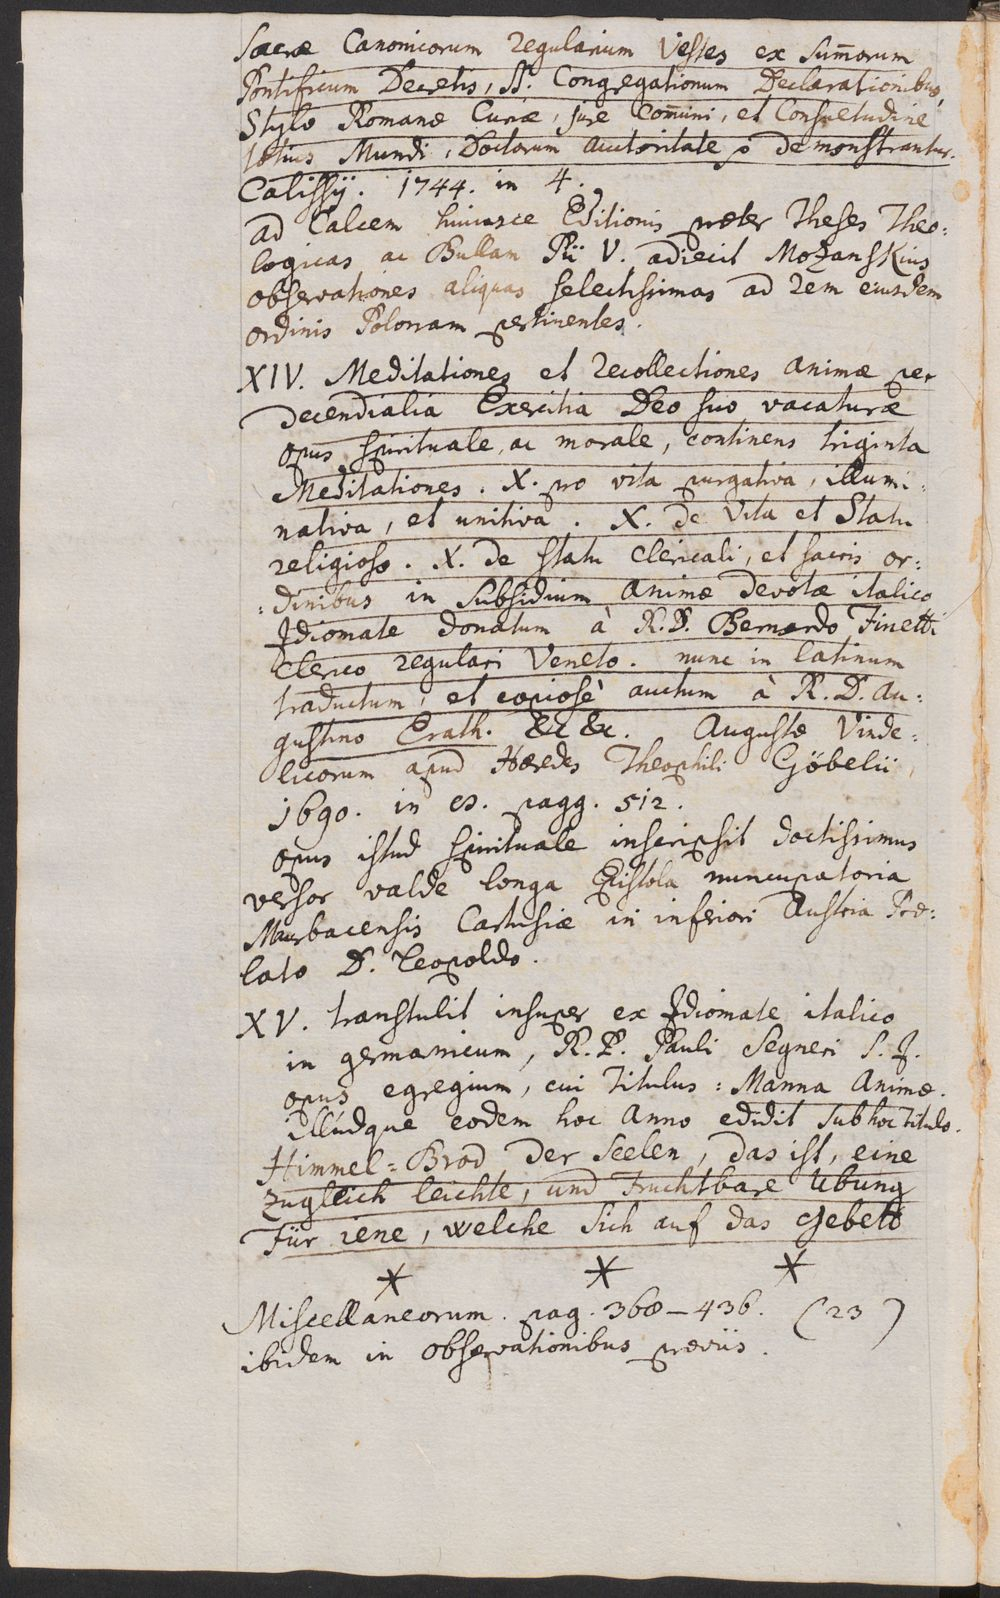 Sacræ Canonicorum regularium Vestes ex Sum̄orum
Pontificum Decretis, SS. Congregationum Declarationibus,
Stylo Romanæ Curiæ, jure Com̄uni, et Consuetudine
totius Mundi, Doctorum auctoritate demonstrantur.
Calissÿ. 1744. in 4.
ad Calcem huiusce Editionis præter Theses Theo:
logicas ac Bullam Pii V. adiecit Mozanskius
observationes aliquas selectissimas ad rem eiusdem
ordinis Polonam pertinentes.
XIV. Meditationes et recollectiones animæ per
decendialia Exercitia Deo suo vacaturæ
opus spirituale, ac morale, continens triginta
Meditationes. X. pro vita purgativa, illumi:
nativa, et unitiva. X. de Vita et Statu
religioso. X. de statu clericali, et sacris or:
:dinibus in subsidium animæ devotæ italico
Idiomate donatum à R.D. Bernardo Finetti
Clerico regulari Veneto. nunc in latinum
traductum, et copiosè auctum à R.D. Au:
gustino Erath. &c &c. Augustæ Vinde:
licorum apud Hæredes Theophili Göbelii,
1690. in 8. pagg. 512.
opus istud spirituale inscripsit doctissimus
versor valde longa Epistola nuncupatoria
Maurbacensis Cartusiæ in inferiori Austria Præ:
lato D. Leopoldo.
XV. transtulit insuper ex Idiomate italico
in germanicum, R.P. Pauli Segneri S.J.
opus egregium, cui Titulus: Manna Animæ.
illúdque eodem hoc anno edidit sub hoc titulo.
Himmel=Brod der Seelen, das ist, eine
zugleich leichte, und Fruchtbare Ubung
Für iene, welche sich auf das Gebett
* * *
Miscellaneorum. pag. 368–436. (23)
ibidem in observationibus præviis.